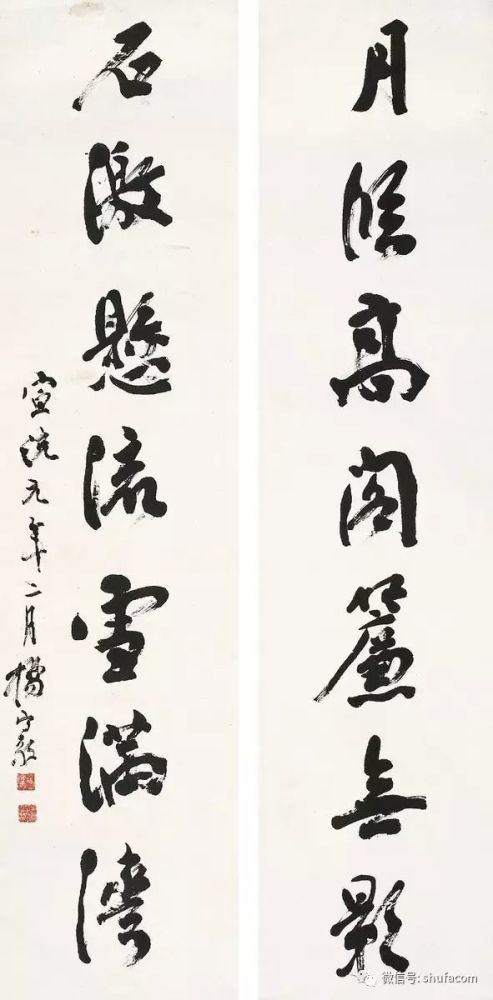 月臨高閣簾無影
石激懸流雪滿灣
宣統元年二月楊守敬
微信号: shufacom